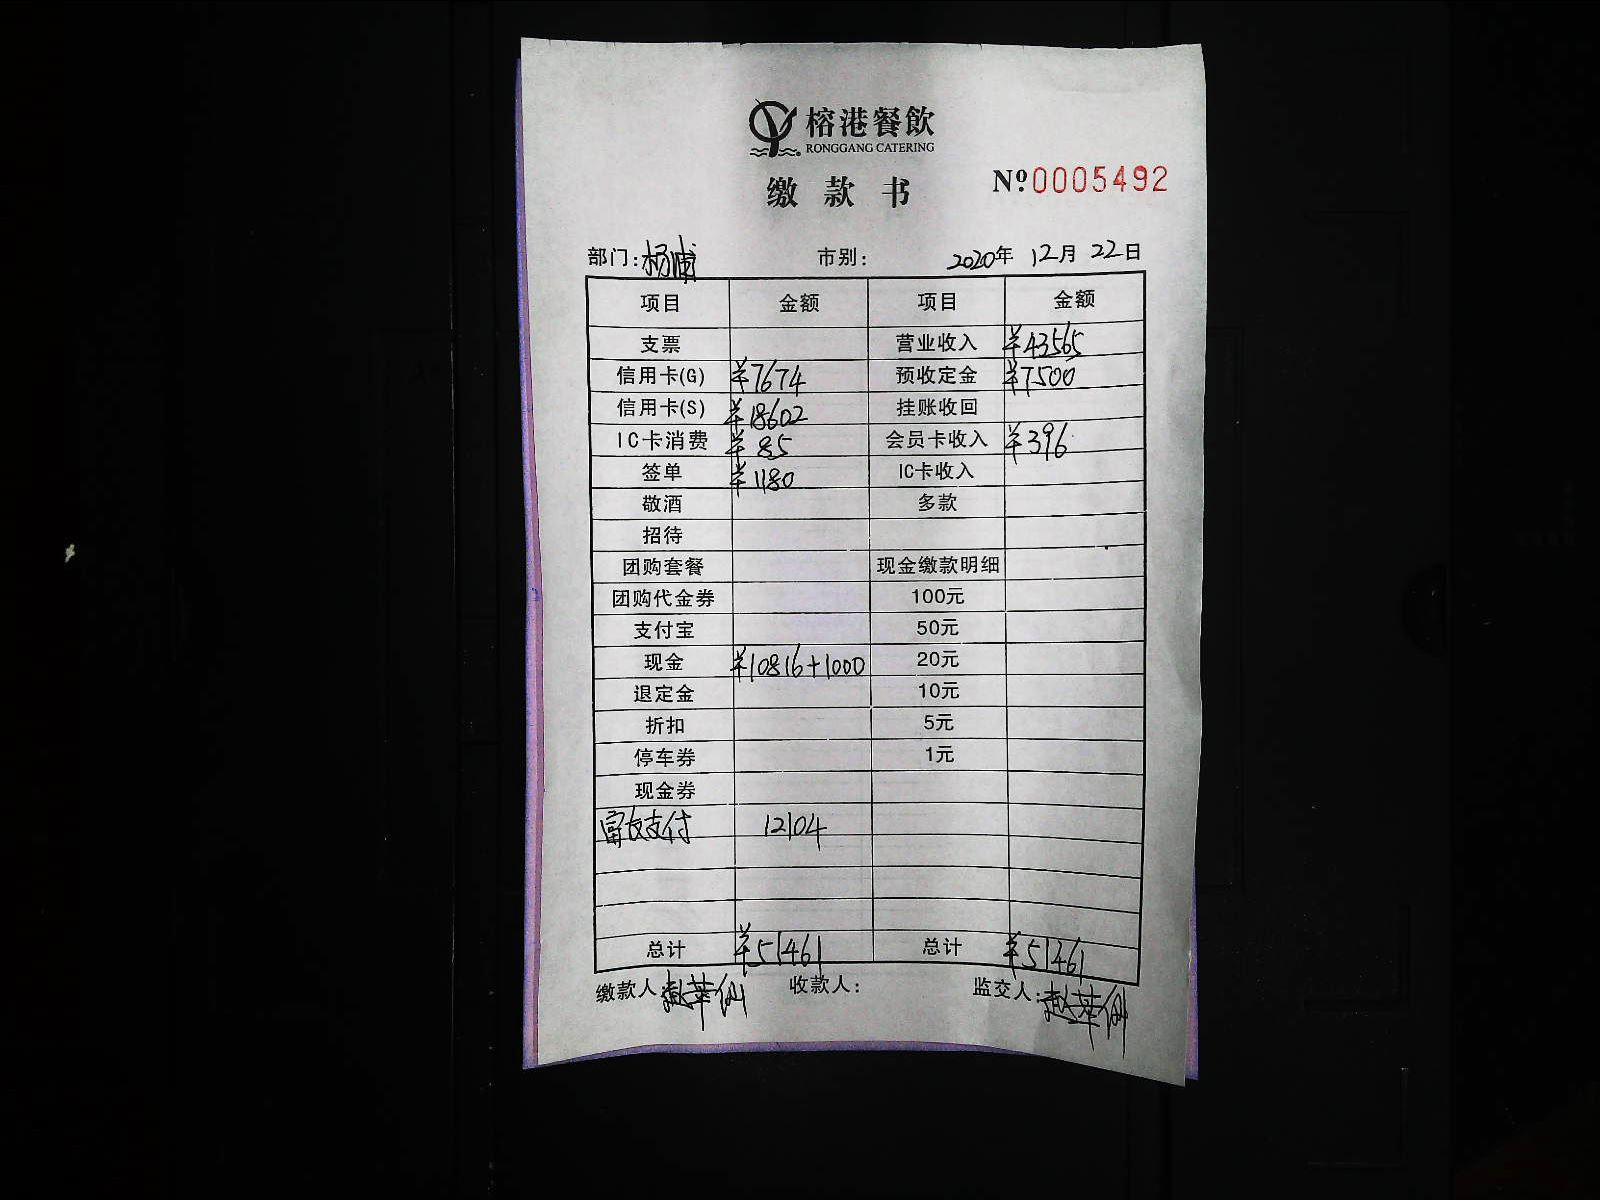 榕港餐飲
RONGGANG CATERING
缴款书 Nº0005492
部门:杨浦 市别: 2020年 12月 22日
项目 金额 项目 金额
支票 营业收入 ¥43565
信用卡(G) ¥7674 预收定金 ¥7500
信用卡(S) ¥18602 挂账收回
IC卡消费 ¥85 会员卡收入 ¥396
签单 ¥1180 IC卡收入
敬酒 多款
招待
团购套餐 现金缴款明细
团购代金券 100元
支付宝 50元
现金 ¥10816+1000 20元
退定金 10元
折扣 5元
停车券 1元
现金券
富友支付 12104
总计 ¥51461 总计 ¥51461
缴款人: 收款人: 监交人: